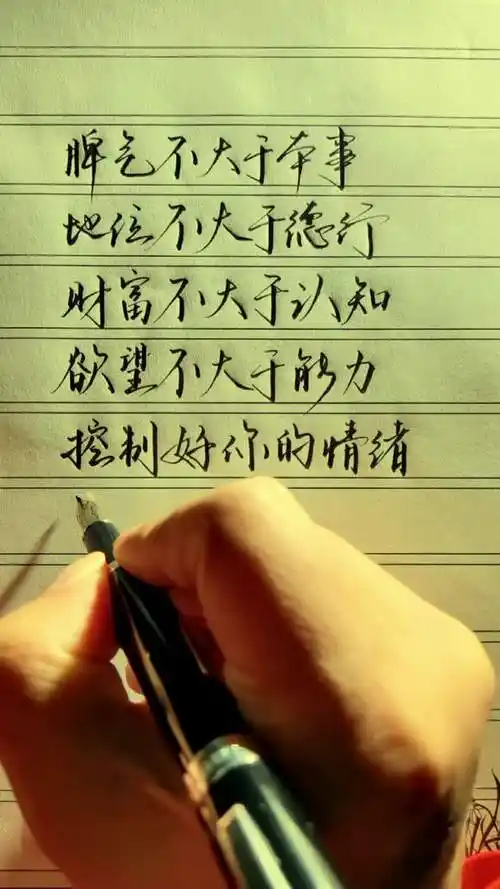 脾气不大于本事
地位不大于德行
财富不大于认知
欲望不大于能力
控制好你的情绪